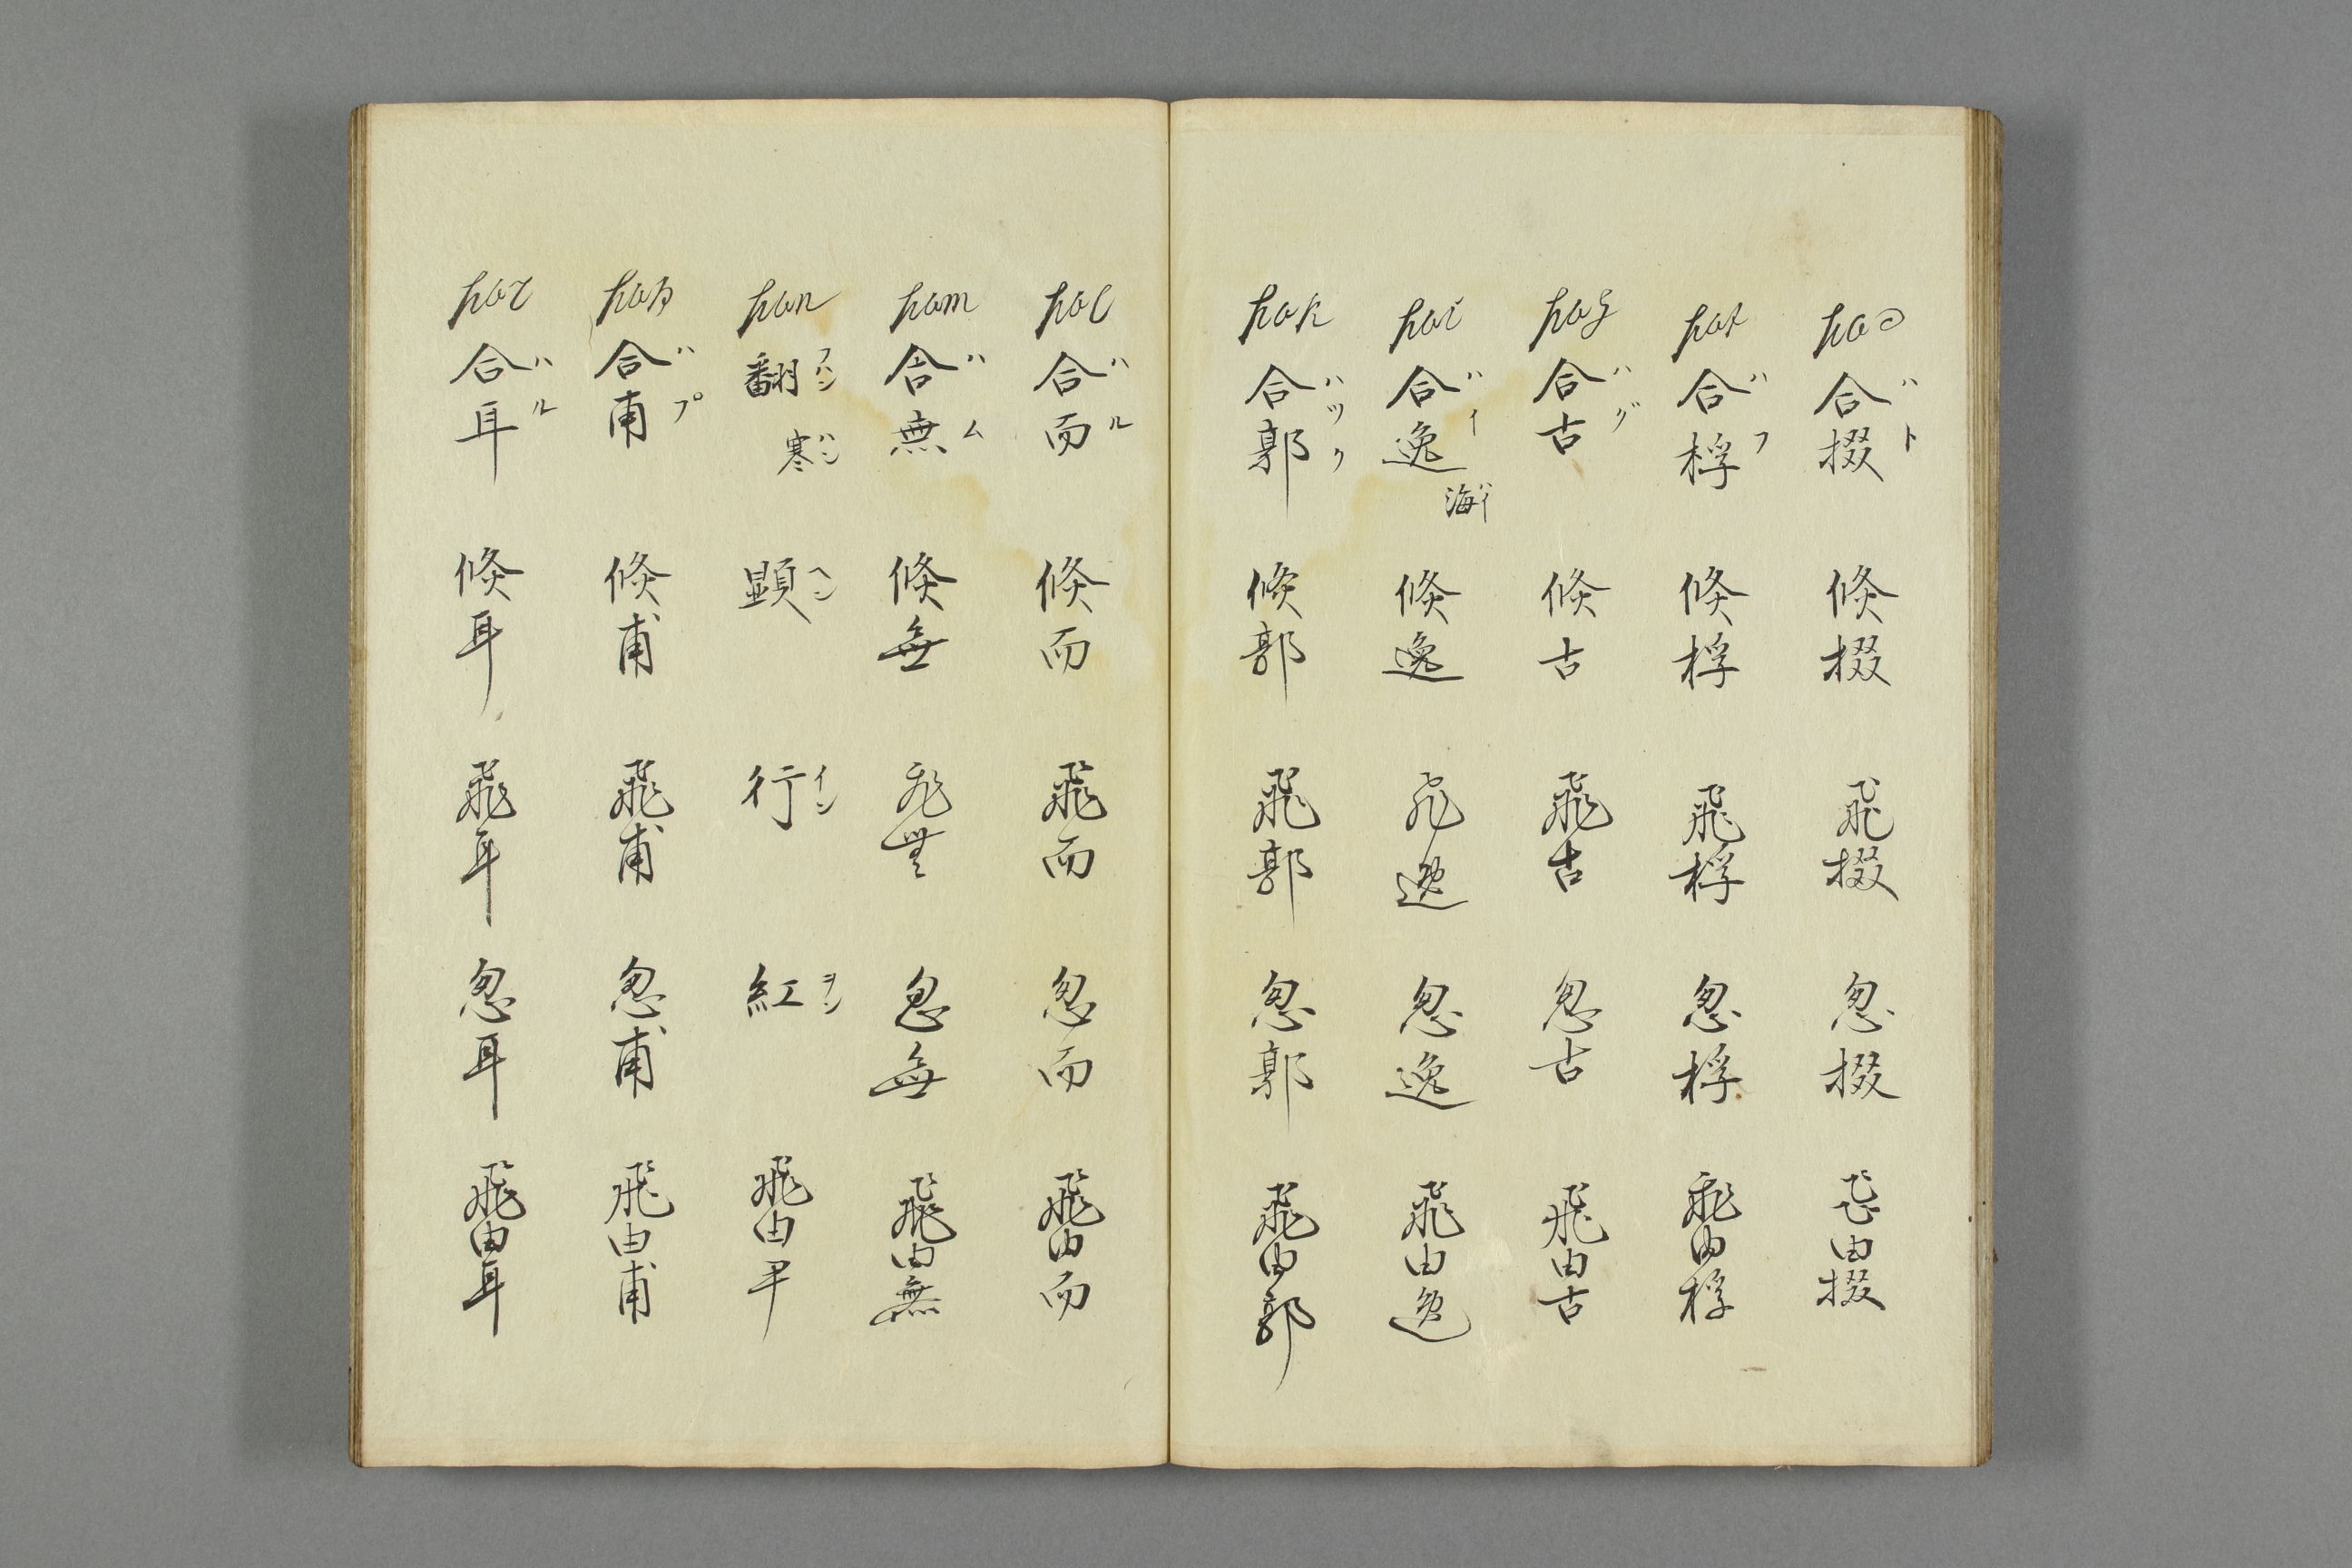 had 合掇 ハト 倏掇 飛掇 忽掇 飛由掇
haf 合桴 ハフ 倏桴 飛桴 忽桴 飛由桴
hag 合古 ハグ 倏古 飛古 忽古 飛由古
hai 合逸 ハイ 海 ハイ 倏逸 飛逸 忽逸 飛由逸
hak 合郭 ハツク 倏郭 飛郭 忽郭 飛由郭
hal 合而 ハル 倏而 飛而 忽而 飛由而
ham 合無 ハム 倏無 飛無 忽無 飛由無
han 翻 フハン 寒 ハン 顕 ヘン 行 イン 紅 ヲン 飛由尹
hap 合甫 ハプ 倏甫 飛甫 忽甫 飛由甫
har 合耳 ハル 倏耳 飛耳 忽耳 飛由耳